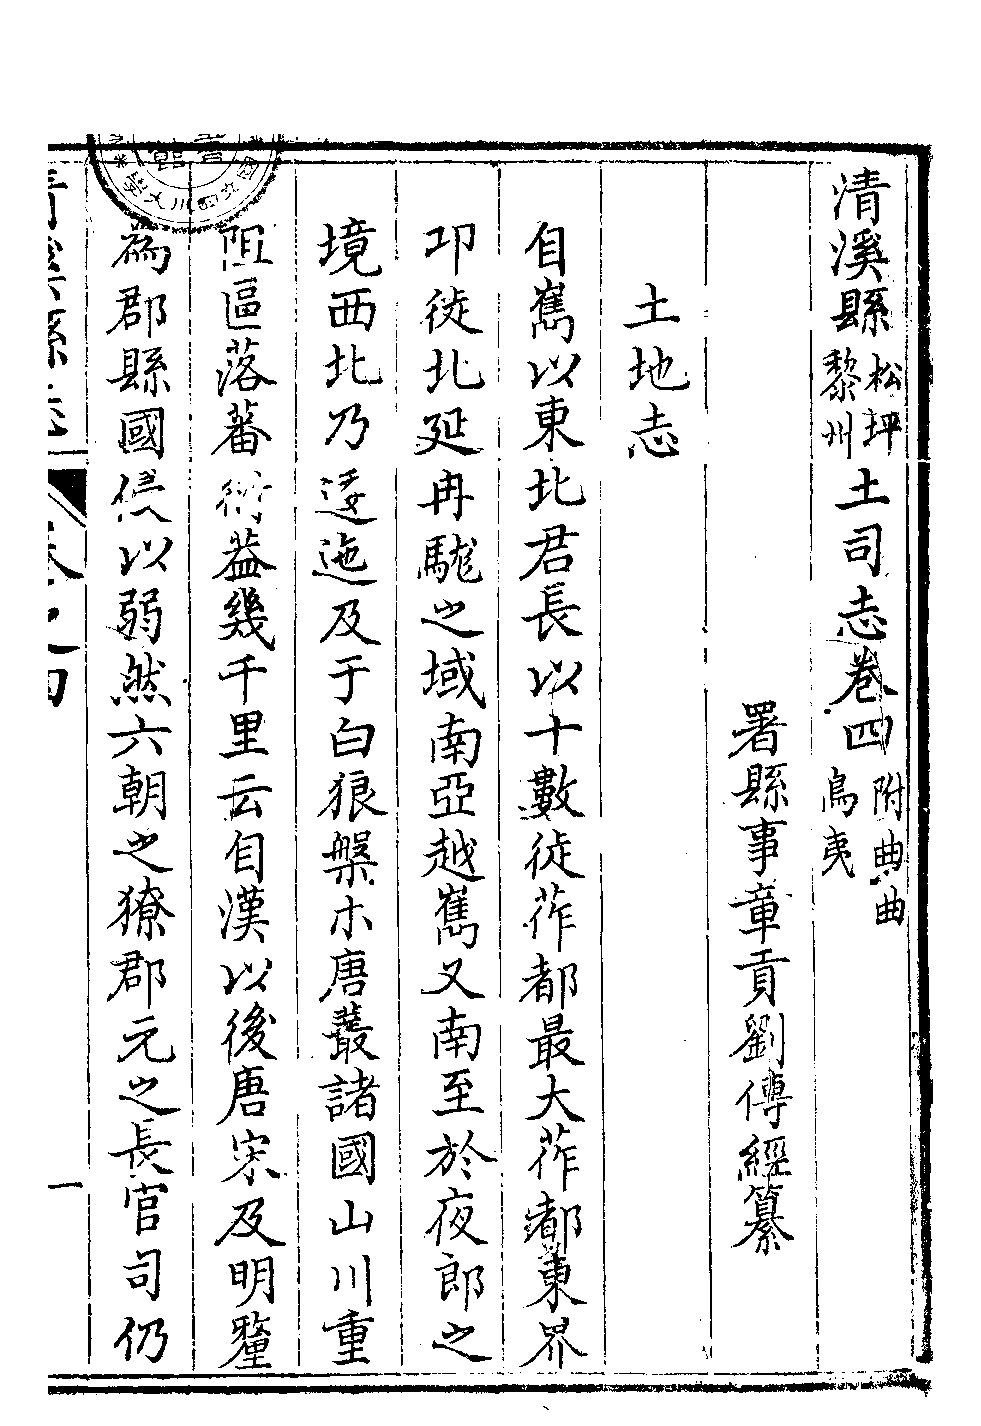 清溪縣松坪黎州土司志卷四附典曲鳥夷
署縣事章貢劉傳經纂
土地志
自嶲以東北君長以十數徙莋都最大莋都東界
邛徙北延冉駹之域南亞越嶲又南至於夜郎之
境西北乃逶迤及于白狼槃木唐叢諸國山川重
阻區落蕃衍葢幾千里云自漢以後唐宋及明釐
為郡縣國侵以弱然六朝之獠郡元之長官司仍
清溪縣志 卷之四 一